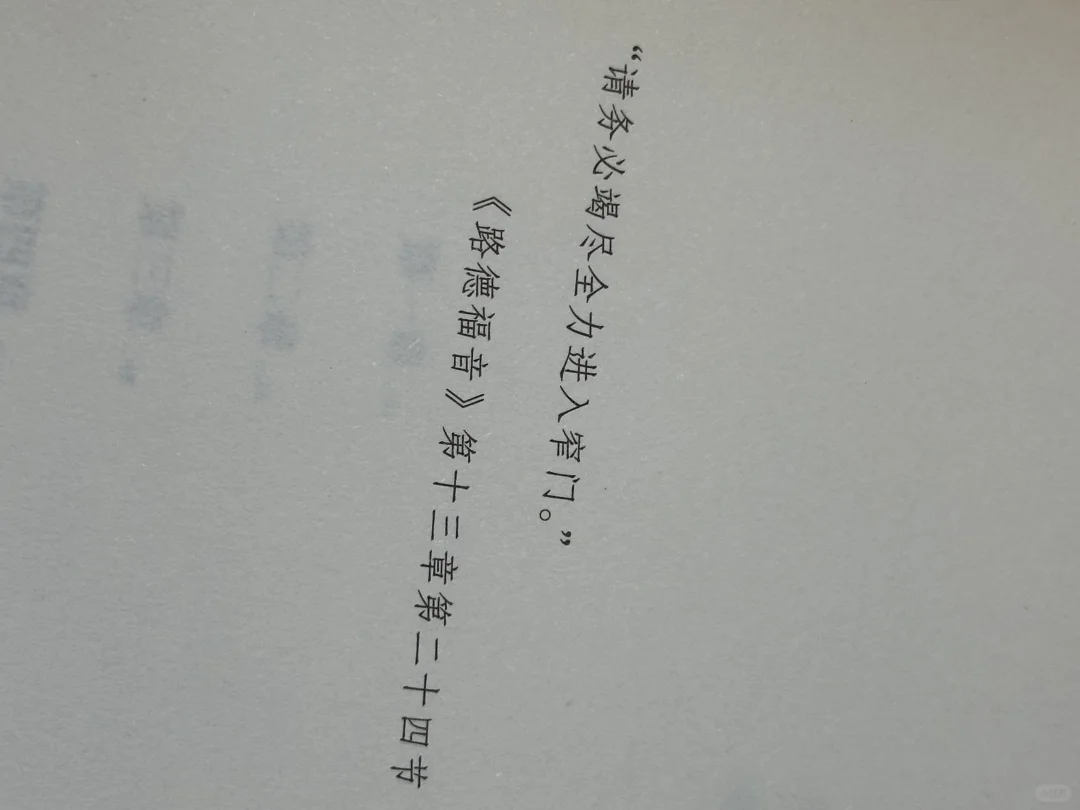 “请务必竭尽全力进入窄门。”
《路德福音》第十三章第二十四节